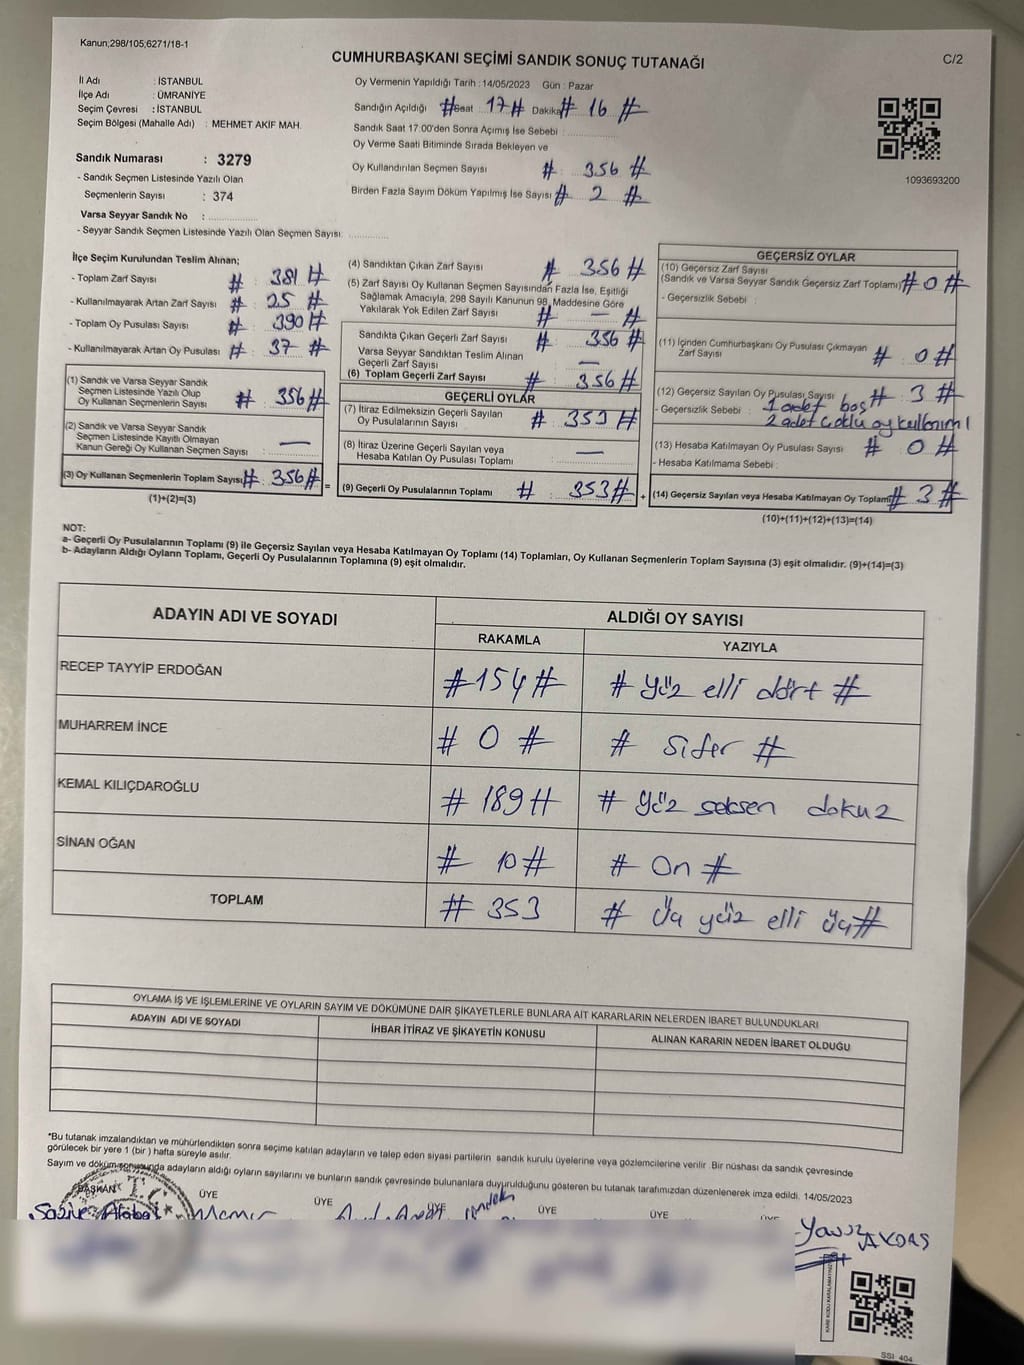 Kanun;298/105;6271/18-1
CUMHURBAŞKANI SEÇİMİ SANDIK SONUÇ TUTANAĞI
C/2
İl Adı : İSTANBUL
İlçe Adı : ÜMRANİYE
Seçim Çevresi : İSTANBUL
Seçim Bölgesi (Mahalle Adı) : MEHMET AKİF MAH.
Sandık Numarası : 3279
- Sandık Seçmen Listesinde Yazılı Olan
Seçmenlerin Sayısı : 374
Varsa Seyyar Sandık No : ..............
- Seyyar Sandık Seçmen Listesinde Yazılı Olan Seçmen Sayısı: ............
Oy Vermenin Yapıldığı Tarih : 14/05/2023 Gün : Pazar
Sandığın Açıldığı # Saat : 17 # Dakika # 16 #
Sandık Saat 17:00'den Sonra Açımış İse Sebebi : ..............
Oy Verme Saati Bitiminde Sırada Bekleyen ve
Oy Kullandırılan Seçmen Sayısı # 356 #
Birden Fazla Sayım Döküm Yapılmış İse Sayısı # 2 #
1093693200
İlçe Seçim Kurulundan Teslim Alınan;
- Toplam Zarf Sayısı # 381 #
- Kullanılmayarak Artan Zarf Sayısı # 25 #
- Toplam Oy Pusulası Sayısı # 390 #
- Kullanılmayarak Artan Oy Pusulası # 37 #
(1) Sandık ve Varsa Seyyar Sandık
Seçmen Listesinde Yazılı Olup
Oy Kullanan Seçmenlerin Sayısı # 356 #
(2) Sandık ve Varsa Seyyar Sandık
Seçmen Listesinde Kayıtlı Olmayan
Kanun Gereği Oy Kullanan Seçmen Sayısı : —
(3) Oy Kullanan Seçmenlerin Toplam Sayısı # 356 # =
(1)+(2)=(3)
(4) Sandıktan Çıkan Zarf Sayısı # 356 #
(5) Zarf Sayısı Oy Kullanan Seçmen Sayısından Fazla İse, Eşitliği
Sağlamak Amacıyla, 298 Sayılı Kanunun 98. Maddesine Göre
Yakılarak Yok Edilen Zarf Sayısı # — #
Sandıkta Çıkan Geçerli Zarf Sayısı # 356 #
Varsa Seyyar Sandıktan Teslim Alınan
Geçerli Zarf Sayısı —
(6) Toplam Geçerli Zarf Sayısı # 356 #
GEÇERLİ OYLAR
(7) İtiraz Edilmeksizin Geçerli Sayılan
Oy Pusulalarının Sayısı # 353 #
(8) İtiraz Üzerine Geçerli Sayılan veya
Hesaba Katılan Oy Pusulası Toplamı —
(9) Geçerli Oy Pusulalarının Toplamı # 353 # +
GEÇERSİZ OYLAR
(10) Geçersiz Zarf Sayısı
(Sandık ve Varsa Seyyar Sandık Geçersiz Zarf Toplamı) # 0 #
- Geçersizlik Sebebi :
(11) İçinden Cumhurbaşkanı Oy Pusulası Çıkmayan
Zarf Sayısı # 0 #
(12) Geçersiz Sayılan Oy Pusulası Sayısı # 3 #
- Geçersizlik Sebebi : 1 adet boş
2 adet çoklu oy kullanımı
(13) Hesaba Katılmayan Oy Pusulası Sayısı # 0 #
- Hesaba Katılmama Sebebi :
(14) Geçersiz Sayılan veya Hesaba Katılmayan Oy Toplamı # 3 #
(10)+(11)+(12)+(13)=(14)
NOT:
a- Geçerli Oy Pusulalarının Toplamı (9) ile Geçersiz Sayılan veya Hesaba Katılmayan Oy Toplamı (14) Toplamları, Oy Kullanan Seçmenlerin Toplam Sayısına (3) eşit olmalıdır. (9)+(14)=(3)
b- Adayların Aldığı Oyların Toplamı, Geçerli Oy Pusulalarının Toplamına (9) eşit olmalıdır.
ADAYIN ADI VE SOYADI
ALDIĞI OY SAYISI
RAKAMLA YAZIYLA
RECEP TAYYİP ERDOĞAN # 154 # # yüz elli dört #
MUHARREM İNCE # 0 # # sıfır #
KEMAL KILIÇDAROĞLU # 189 # # yüz seksen dokuz
SİNAN OĞAN # 10 # # On #
TOPLAM # 353 # Üç yüz elli üç #
OYLAMA İŞ VE İŞLEMLERİNE VE OYLARIN SAYIM VE DÖKÜMÜNE DAİR ŞİKAYETLERLE BUNLARA AİT KARARLARIN NELERDEN İBARET BULUNDUKLARI
ADAYIN ADI VE SOYADI İHBAR İTİRAZ VE ŞİKAYETİN KONUSU ALINAN KARARIN NEDEN İBARET OLDUĞU
*Bu tutanak imzalandıktan ve mühürlendikten sonra seçime katılan adayların ve talep eden siyasi partilerin sandık kurulu üyelerine veya gözlemcilerine verilir. Bir nüshası da sandık çevresinde
görülecek bir yere 1 (bir ) hafta süreyle asılır.
Sayım ve döküm sonucunda adayların aldığı oyların sayılarını ve bunların sandık çevresinde bulunanlara duyurulduğunu gösteren bu tutanak tarafımızdan düzenlenerek imza edildi. 14/05/2023
BAŞKAN ÜYE ÜYE ÜYE ÜYE ÜYE ÜYE
T.C.
SSI 404